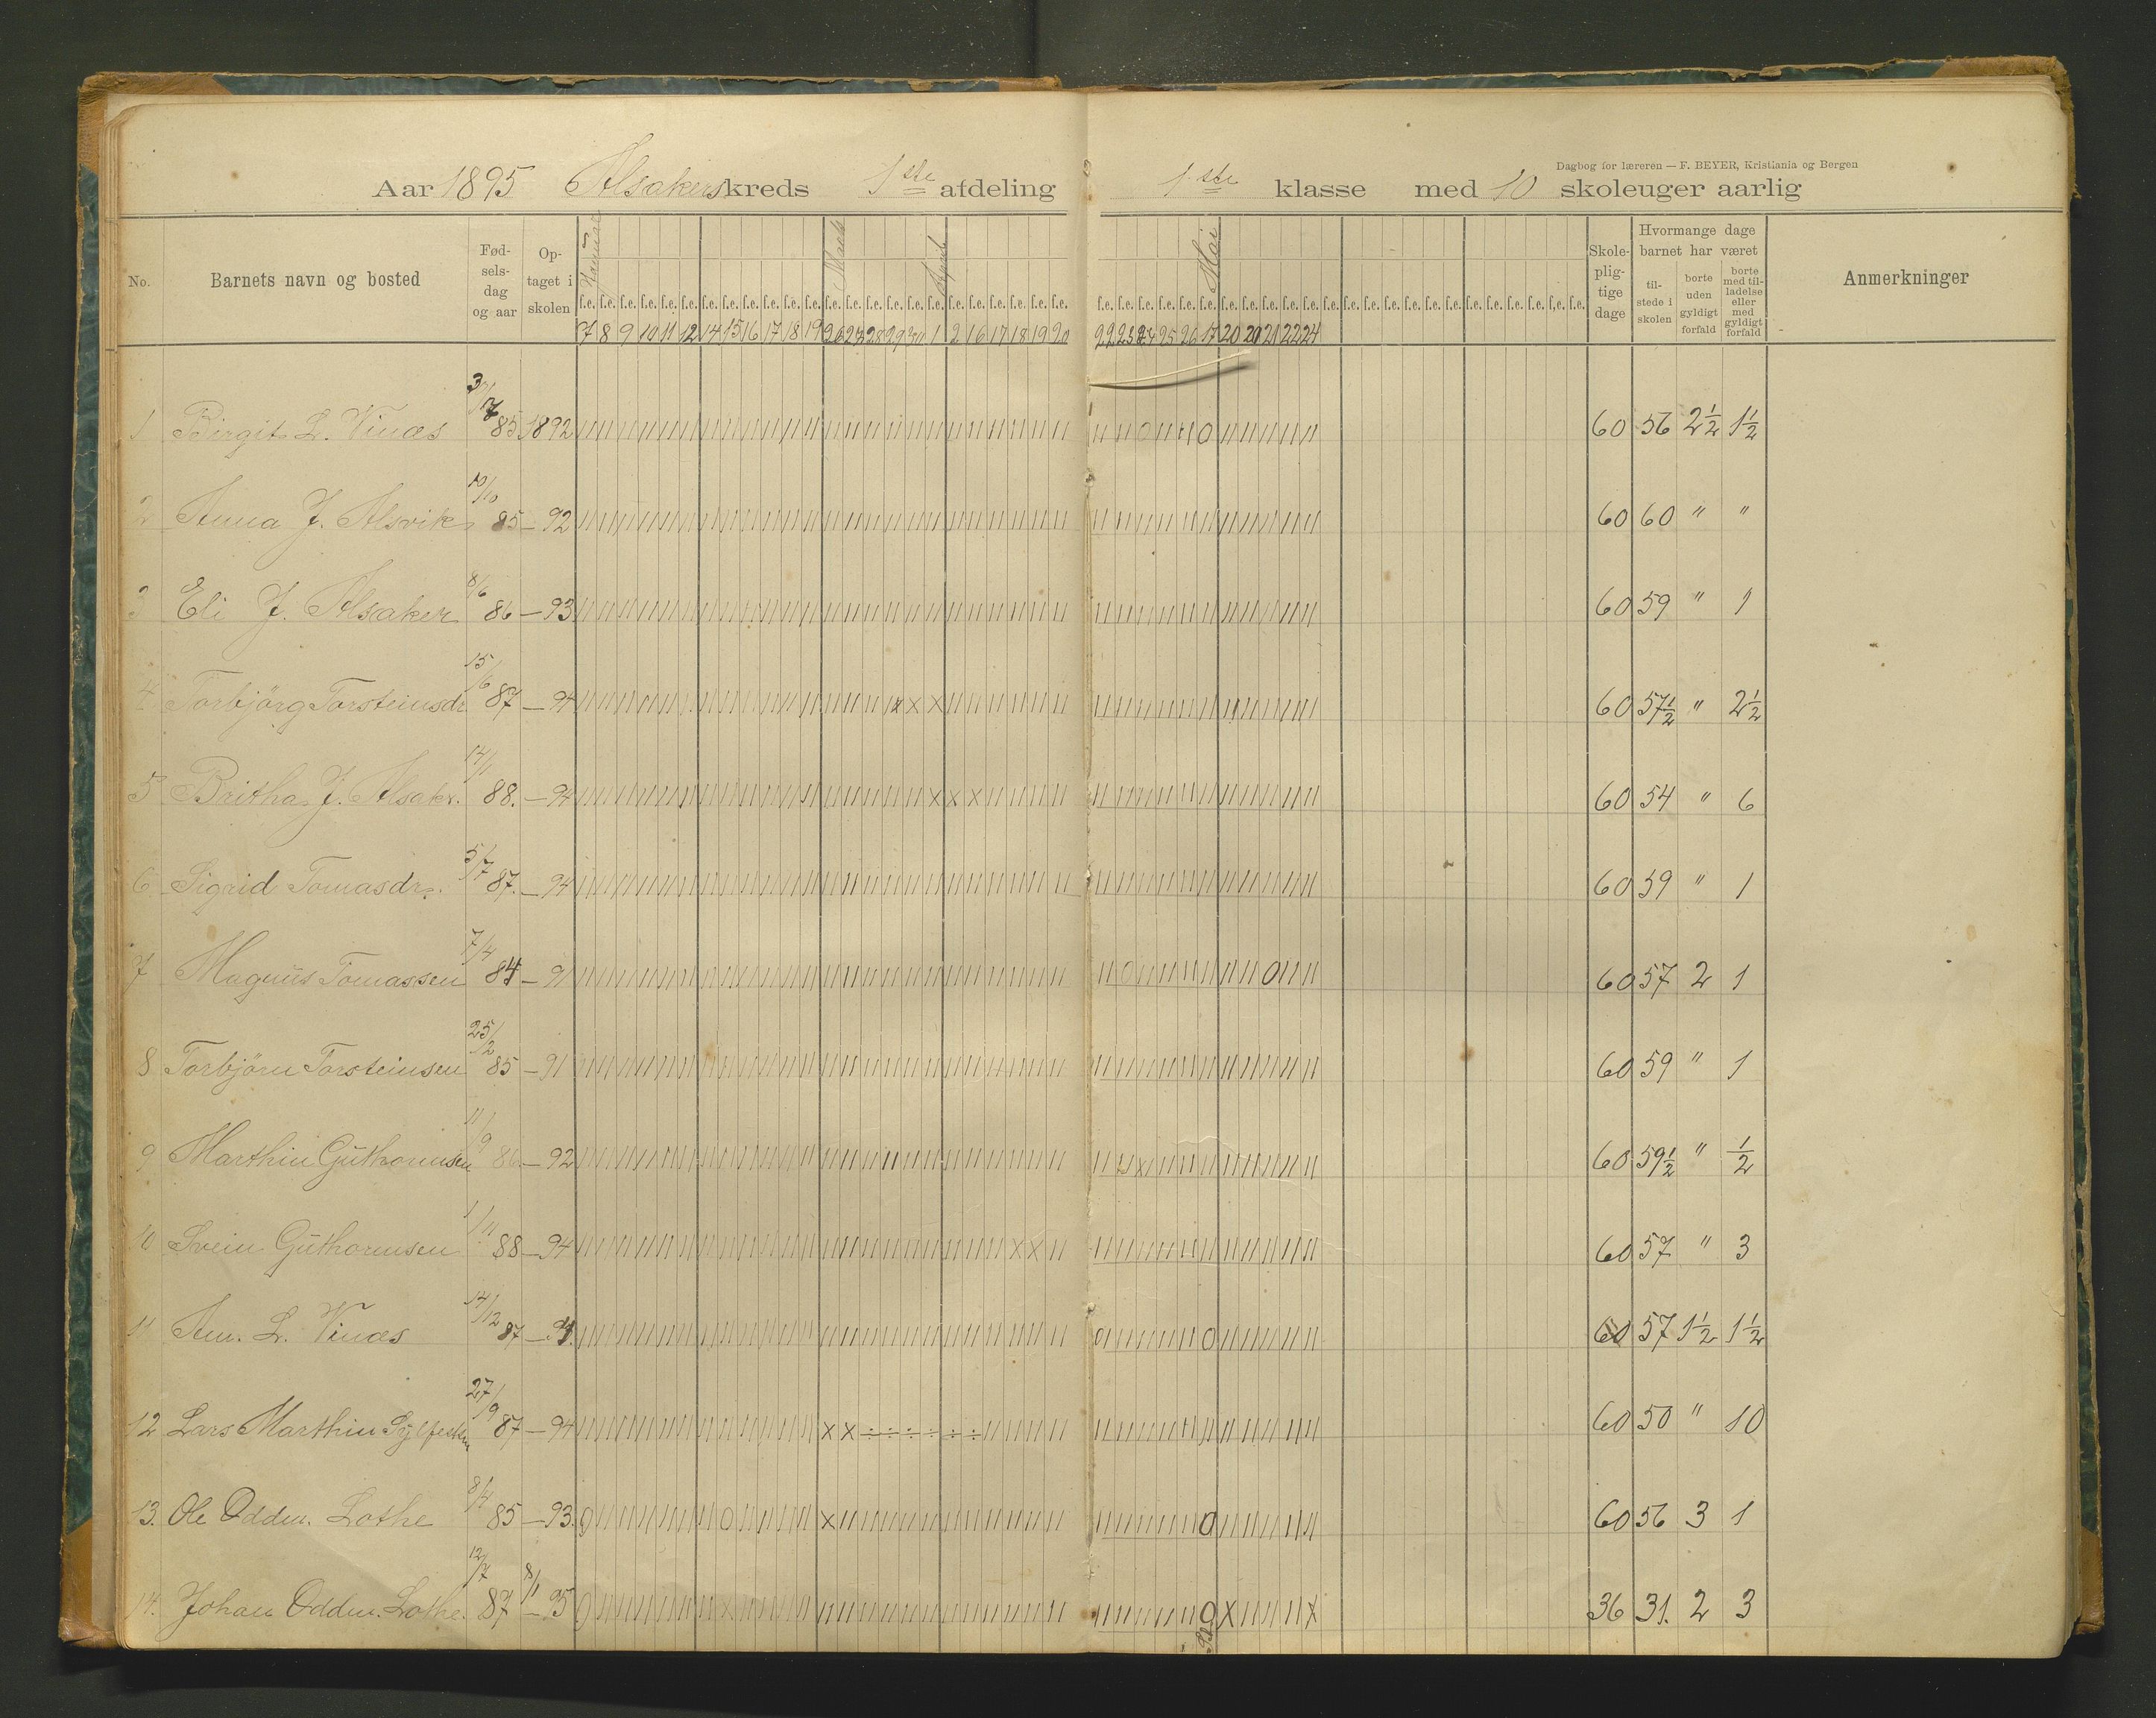 Dagbog for læreren — F. BEYER, Kristiania og Bergen
Aar 1895 Alsakers kreds 1ste afdeling 1ste klasse med 10 skoleuger aarlig
No. Barnets navn og bosted Fødselsdag og aar Optaget i skolen Januar Marts April Mai Skolepligtige dage Hvormange dage barnet har været tilstede i skolen borte uden gyldigt forfald borte med tilladelse eller med gyldigt forfald Anmerkninger
f.e. f.e. f.e. f.e. f.e. f.e. f.e. f.e. f.e. f.e. f.e. f.e. f.e. f.e. f.e. f.e. f.e. f.e. f.e. f.e. f.e. f.e. f.e. f.e. f.e. f.e. f.e. f.e. f.e. f.e. f.e. f.e. f.e. f.e. f.e. f.e. f.e. f.e. f.e. f.e. f.e. f.e. f.e. f.e. f.e. f.e. f.e. f.e.
7 8 9 10 11 12 14 15 16 17 18 19 26 27 28 29 30 1 2 16 17 18 19 20 22 23 24 25 26 17 20 20 21 22 24
1 Birgit L. Vinæs 3/7 85 1892 60 56 2½ 1½
2 Anna J. Alsvik 10/10 85 — 92 60 60 " "
3 Eli J. Alsaker 8/6 86 — 93 60 59 " 1
4 Torbjörg Torsteinsdr 15/6 87 — 94 60 57½ " 2½
5 Britha J. Alsaker. 14/1 88. — 94 60 54 " 6
6 Sigrid Tomasdr. 5/7 87. — 94 60 59 " 1
7 Magnus Tomassen 7/4 84 — 91 60 57 2 1
8 Torbjörn Torsteinsen 25/2 85 — 91 60 59 " 1
9 Marthin Guthormsen 11/9 86 — 92 60 59½ " ½
10 Svein Guthormsen 1/11 88 — 94 60 57 " 3
11 Am. L. Vinæs 14/12 87 — 94. 60 57 1½ 1½
12 Lars Marthin 27/9 87 — 94 60 50 " 10
13. Ole Oddm. Lothe 8/4 85 — 93. 60 56 3 1
14. Johan Oddm. Lothe. 12/7 87 8/1 — 95 36 31. 2 3